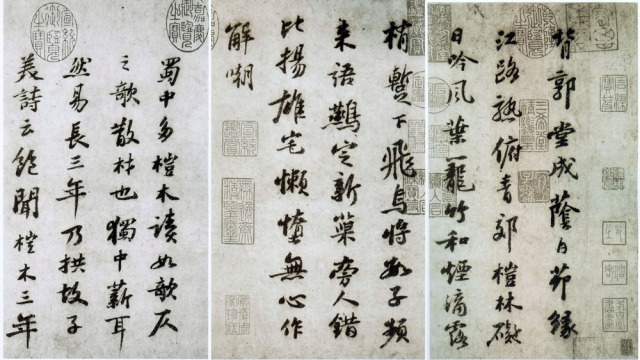 背郭堂成蔭白茆緣
江路熟俯青郊榿林礙
日吟風葉籠竹和煙滴露
梢蹔下飛烏將數子頻
来語鷰定新巢旁人錯
比揚雄宅懶惰無心作
解嘲
蜀中多榿木讀如欹仄
之欹散材也獨中薪耳
然易長三年乃拱故子
美詩云飽聞榿木三年
嘉慶御覽之寶
宣統御覽之寶